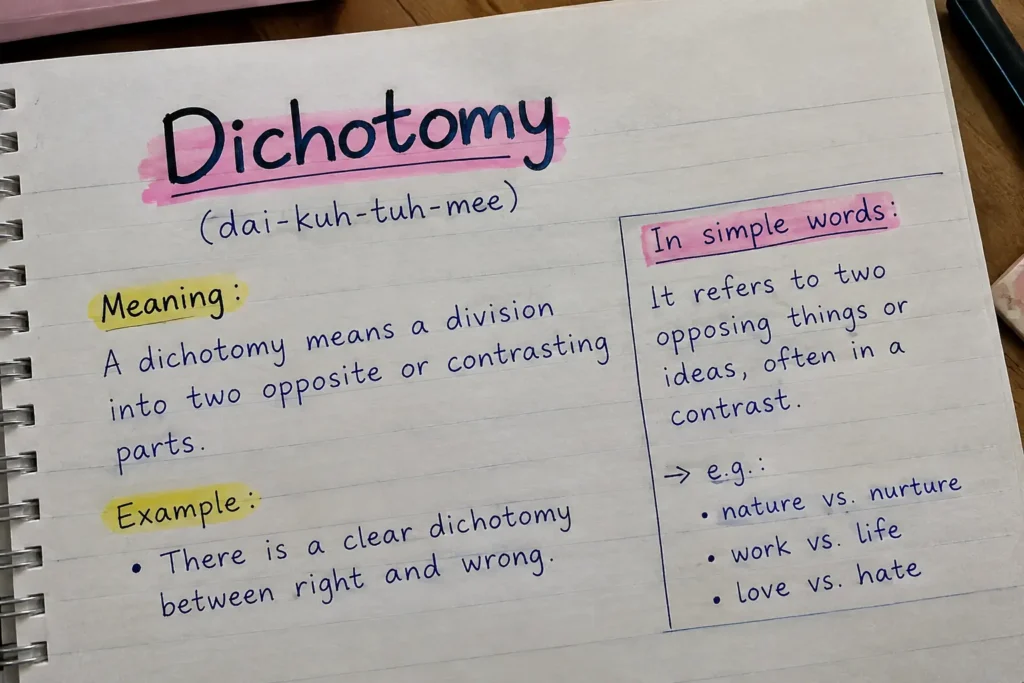 Dichotomy
(dai-kuh-tuh-mee)
Meaning:
A dichotomy means a division
into two opposite or contrasting
parts.
Example:
• There is a clear dichotomy
between right and wrong.
In simple words:
It refers to two
opposing things or
ideas, often in a
contrast.
→ e.g.:
• nature vs. nurture
• work vs. life
• love vs. hate